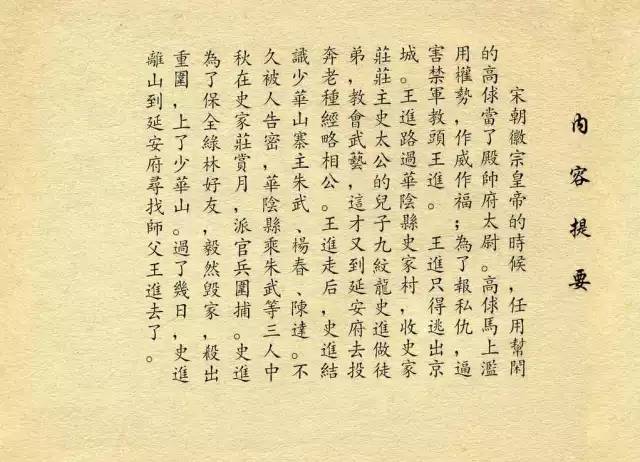 內容提要
宋朝徽宗皇帝的時候，任用幫閑
的高俅當了殿帥府太尉。高俅馬上濫
用權勢，作威作福；為了報私仇，逼
害禁軍教頭王進。王進只得逃出京
城。王進路過華陰縣史家村，收史家
莊莊主史太公的兒子九紋龍史進做徒
弟，教會武藝，這才又到延安府去投
奔老種經略相公。王進走后，史進結
識少華山寨主朱武、楊春、陳達。不
久被人告密，華陰縣乘朱武等三人中
秋在史家莊賞月，派官兵圍捕。史進
為了保全綠林好友，毅然毀家，殺出
重圍，上了少華山。過了幾日，史進
離山到延安府尋找師父王進去了。